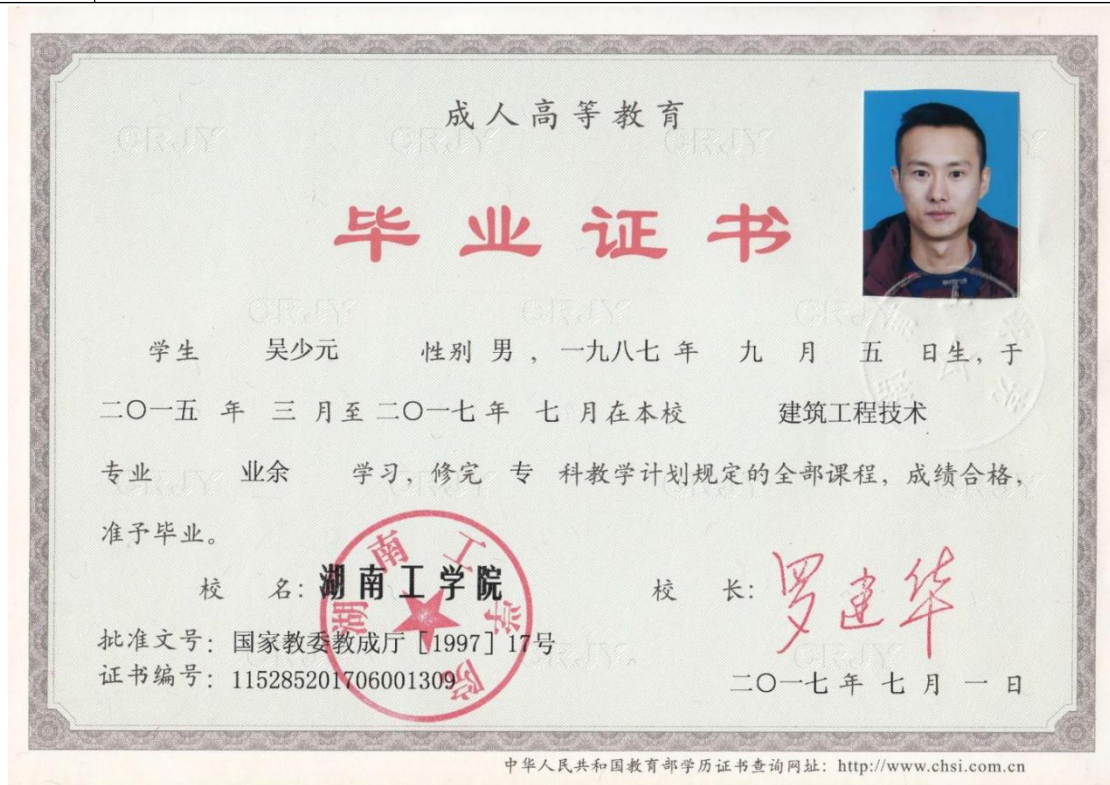 成人高等教育
毕业证书
学生 吴少元 性别 男 ，一九八七 年 九 月 五 日生，于
二〇一五 年 三 月至 二〇一七 年 七 月在本校 建筑工程技术
专业 业余 学习，修完 专 科教学计划规定的全部课程，成绩合格，
准予毕业。
校 名：湖南工学院 校 长：罗建华
批准文号：国家教委教成厅［1997］17号
证书编号：115285201706001309 二〇一七 年 七 月 一 日
湖南工学院
中华人民共和国教育部学历证书查询网址：http://www.chsi.com.cn
CRJY CRJY CRJY
CRJY CRJY CRJY